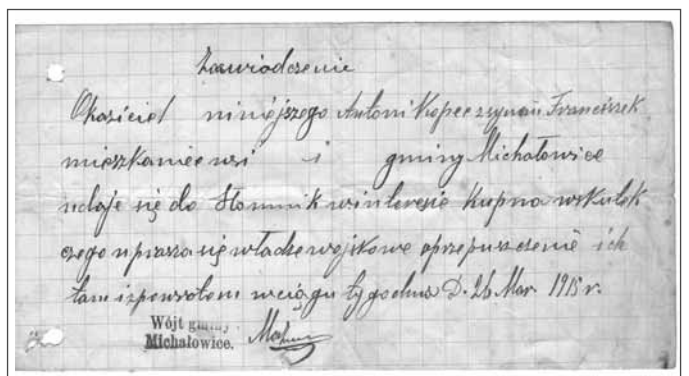 Zaswiadczenie
Okaziciel niniejszego Antoni Kopeć z synem Franciszek
mieszkaniec wsi i gminy Michałowice
udaje się do Słomnik w interesie kupna wskutek
czego uprasza się władze wojskowe o przepuszczenie ich
tam i zpowrotem w ciągu tygodnia D. 26 Mar. 1915 r.
Wójt gminy
Michałowice.